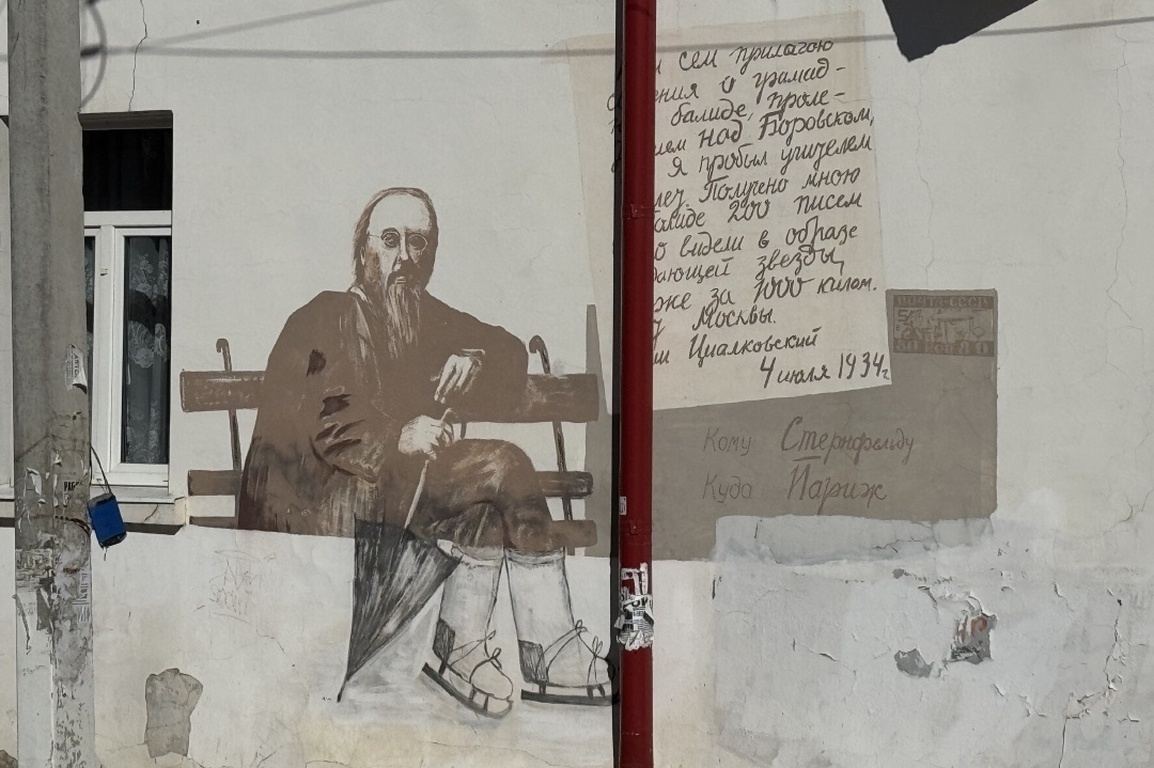 сем прилагаю
ения о грамад-
балиде, проле-
ием над Боровском,
я пробыл учителем
леч. Получено мною
алиде 200 писем
о видели в образе
дающей звезды,
же за 1000 килом.
у Москвы.
ш Циалковский
4 июля 1934г.
Кому Стернфельду
Куда Париж